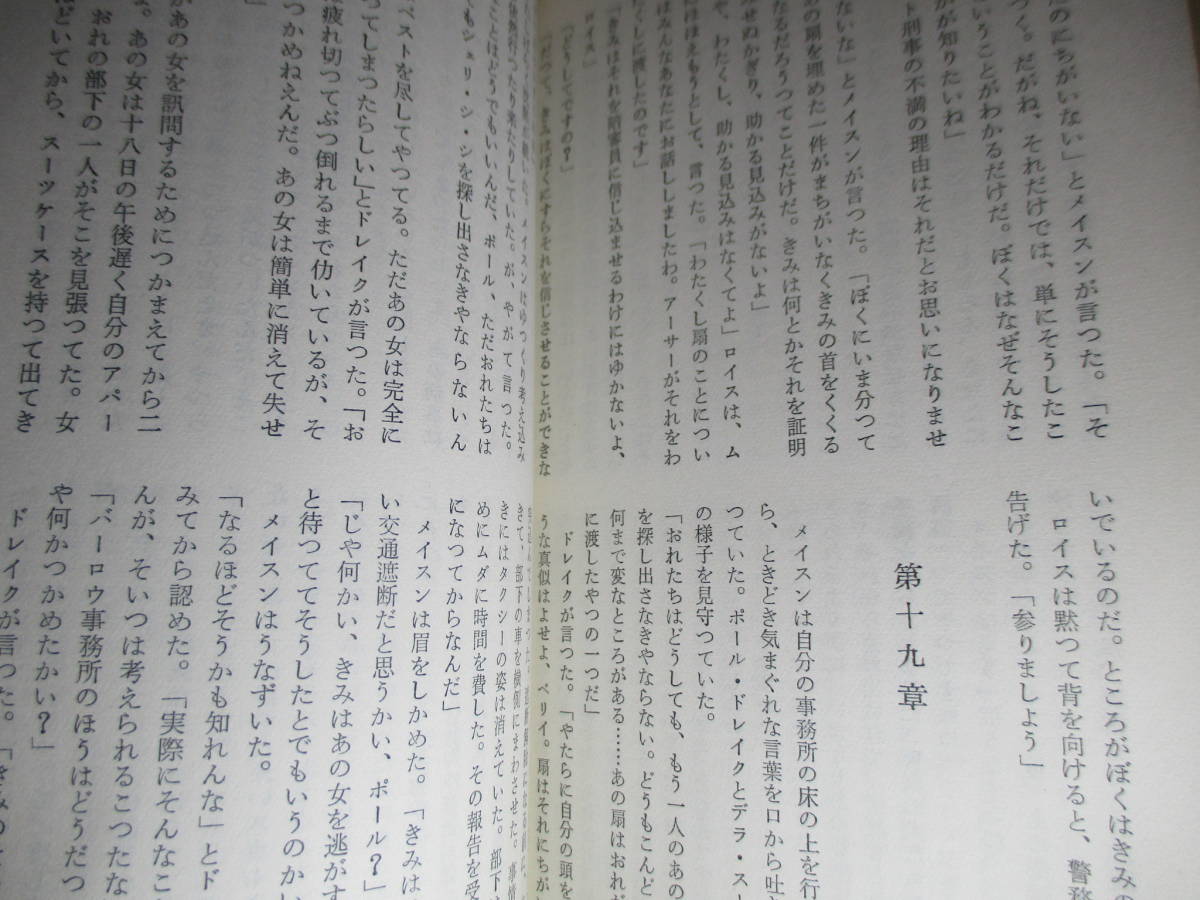 たのにちがいない」とメイスンが言つた。「そ
つく。だがね、それだけでは、単にそうしたこ
いうことがわかるだけだ。ぼくはなぜそんなこ
が知りたいね」
ト刑事の不満の理由はそれだとお思いになりませ
ないな」とメイスンが言つた。「ぼくにいま分つて
あの扇を埋めた一件がまちがいなくきみの首をくくる
なるだろうつてことだけだ。きみは何とかそれを証明
みせぬかぎり、助かる見込みがないよ」
や、わたくし、助かる見込みはなくてよ」ロイスは、ム
にほほえもうとして、言つた。「わたくし扇のことについ
はみんなあなたにお話ししましたわ。アーサーがそれをわ
たくしに渡したのです」
「きみはそれを陪審員に信じ込ませるわけにはゆかないよ、
ロイス」
「どうしてですの?」
「だつて、きみはぼくにすらそれを信じさせることができな
いでいるのだ。ところがぼくはきみの
ロイスは黙つて背を向けると、警務
告げた。「参りましよう」
第十九章
メイスンは自分の事務所の床の上を行
ら、ときどき気まぐれな言葉を口から吐き
つていた。ポール・ドレイクとデラ・スト
の様子を見守つていた。
「おれたちはどうしても、もう一人のあの
を探し出さなきやならない。どうもこんど
何まで変なところがある……あの扇はおれが
に渡したやつの一つだ」
ドレイクが言つた。「やたらに自分の頭を
うな真似はよせよ、ペリイ。扇はそれにちが
メイスンはゆつくり考え込み
行つたり来たりしていた。が、やがて言つた。
ことはどうでもいいんだ、ポール、ただおれたちは
でもシェリ・シ・シを探し出さなきやならないん
ベストを尽してやつてる。ただあの女は完全に
つてしまつたらしい」とドレイクが言つた。「お
は疲れ切つてぶつ倒れるまで仂いているが、そ
つかめねえんだ。あの女は簡単に消えて失せ
」
があの女を訊問するためにつかまえてから二
よ。あの女は十八日の午後遅く自分のアパー
おれの部下の一人がそこを見張つてた。女
ほどいてから、スーツケースを持つて出てき
きて、部下の車を横切にまわさせた。事情
きにはタクシーの姿は消えていた。部下は
めにムダに時間を費した。その報告を受
になつてからなんだ」
メイスンは眉をしかめた。「きみは
い交通遮断だと思うかい、ポール?」
「じや何かい、きみはあの女を逃がす
と待つててそうしたとでもいうのかい
メイスンはうなずいた。
「なるほどそうかも知れんな」とド
みてから認めた。「実際にそんなこ
んが、そいつは考えられるこつたな
「バーロウ事務所のほうはどうだつ
や何かつかめたかい?」
ドレイクが言つた。「きみの